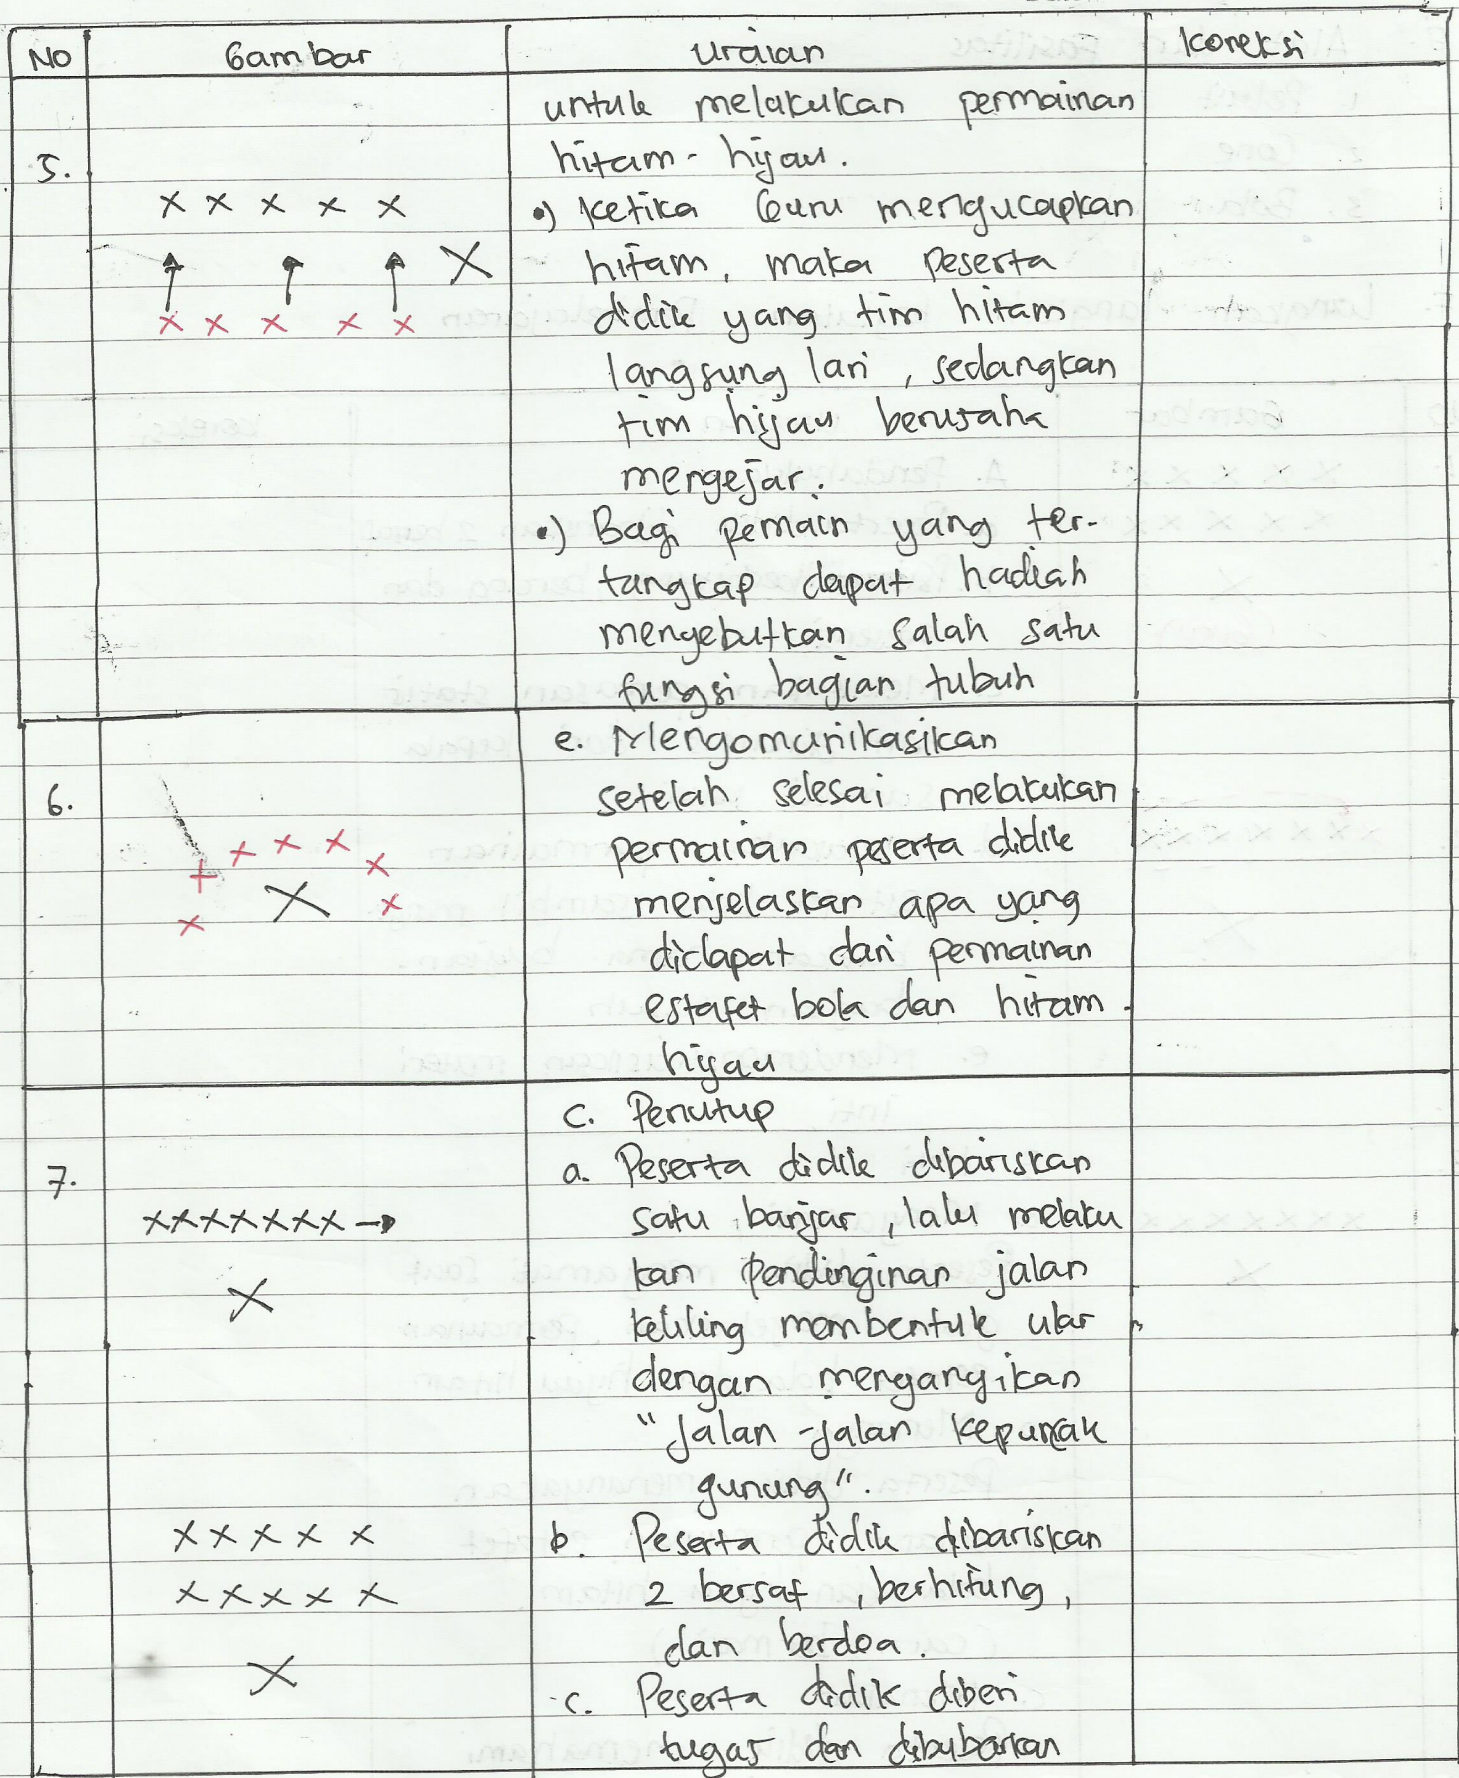 No Gambar Uraian Koreksi
untuk melakukan permainan
5. hitam - hijau.
•) Ketika Guru mengucapkan
hitam, maka Peserta
didik yang tim hitam
langsung lari, sedangkan
tim hijau berusaha
mengejar.
•) Bagi pemain yang ter-
tangkap dapat hadiah
mengebutkan salah satu
fungsi bagian tubuh
e. Mengomunikasikan
6. setelah selesai melakukan
permainan peserta didik
menjelaskan apa yang
didapat dari permainan
estafet bola dan hitam
hijau
C. Penutup
7. a. Peserta didik dibariskan
satu banjar, lalu melaku
kan pendinginan jalan
keliling membentuk ular
dengan menyanyikan
"Jalan-jalan kepuncak
gunung".
b. Peserta didik dibariskan
2 bersaf, berhitung,
dan berdoa.
c. Peserta didik diberi
tugas dan dibubarkan